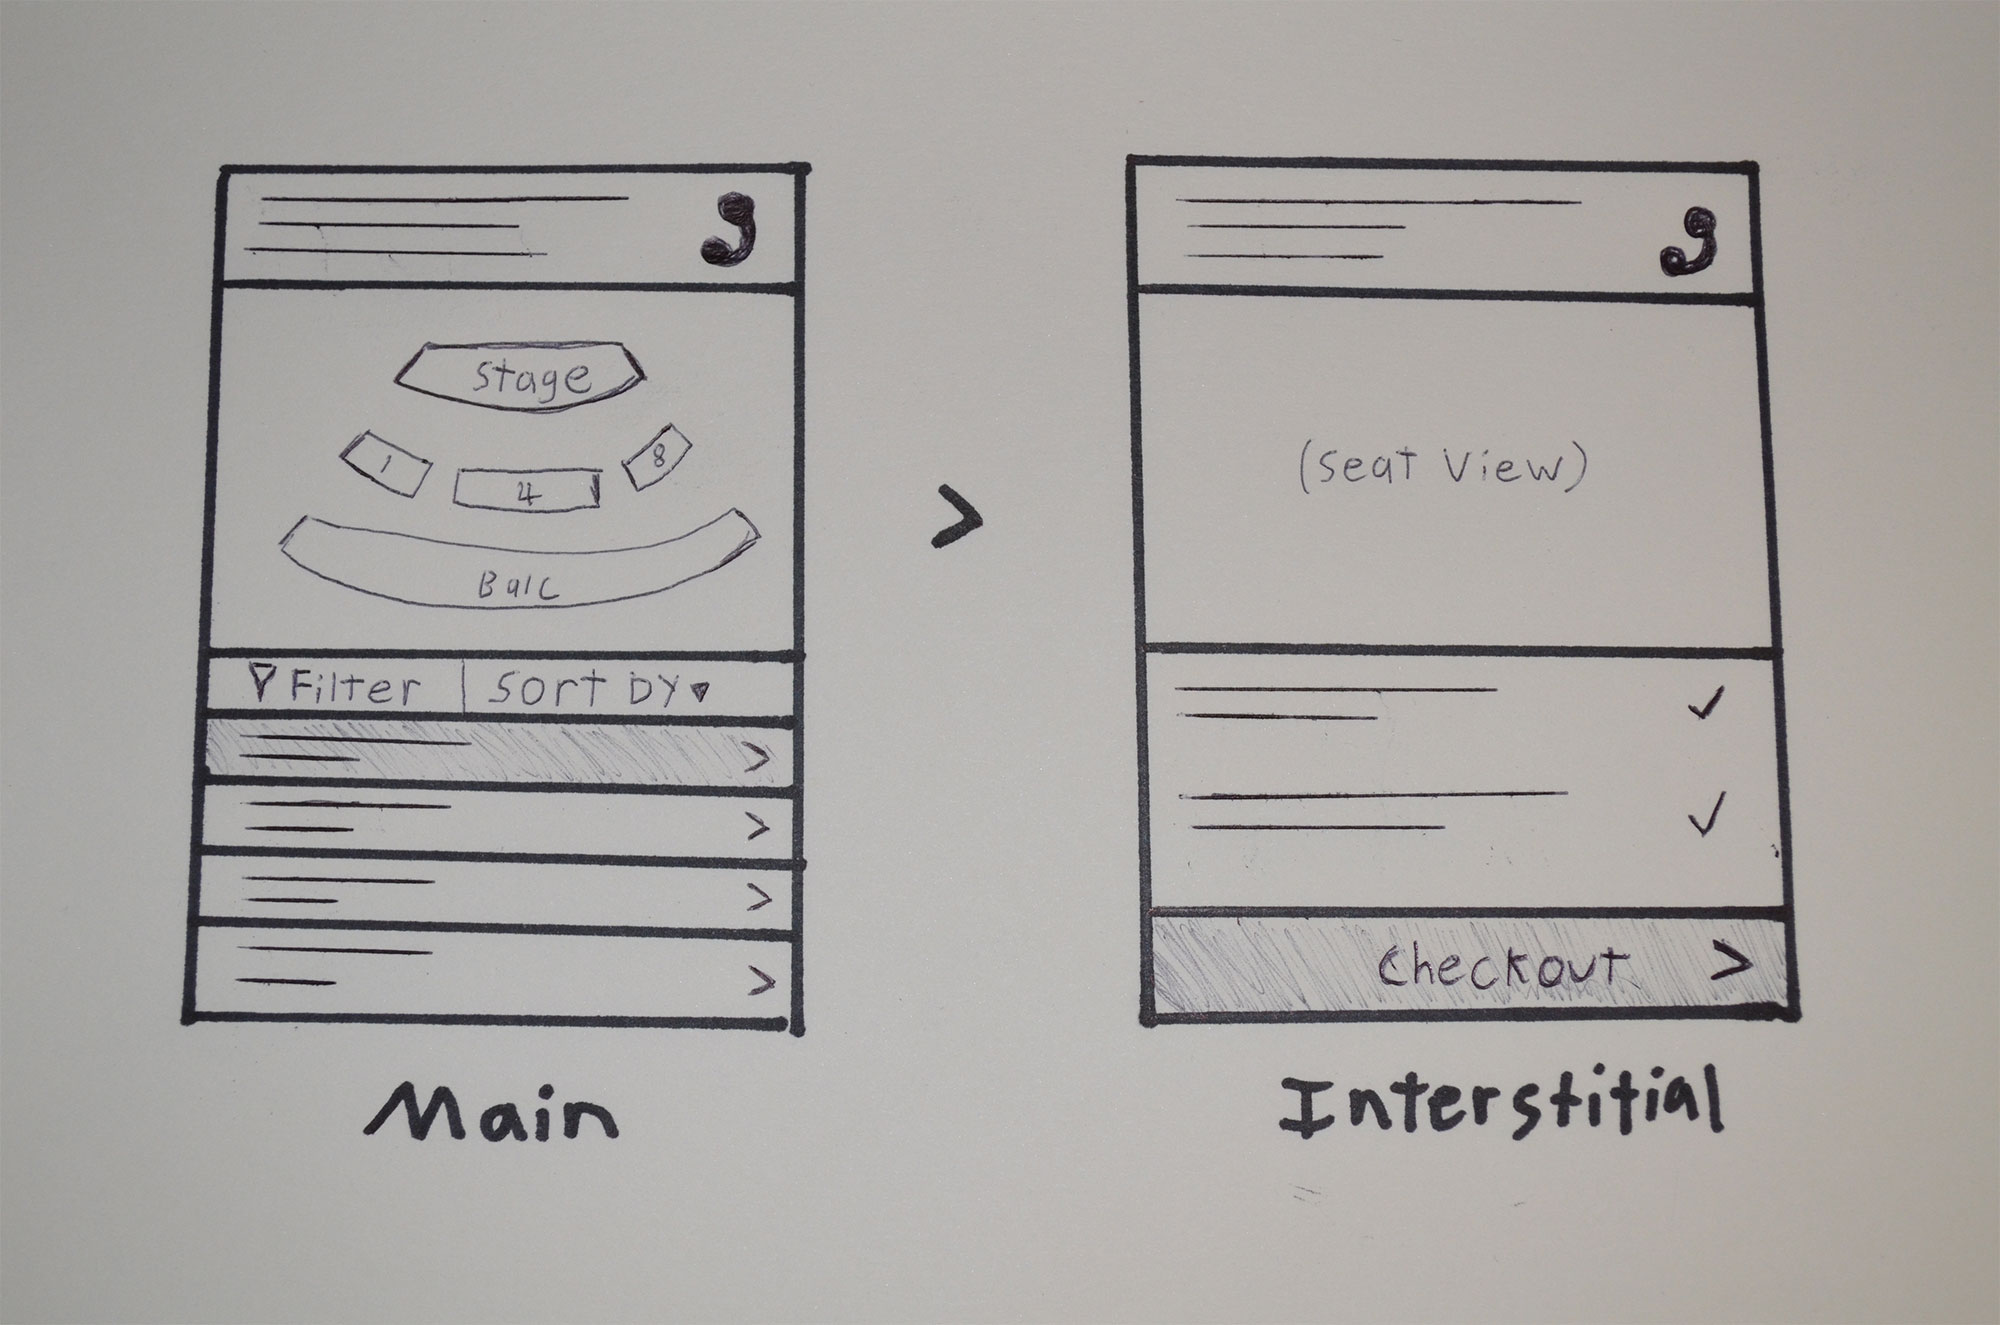 stage
1
4
8
Balc
Filter
Sort by
>
(Seat View)
Checkout >
Main
Interstitial